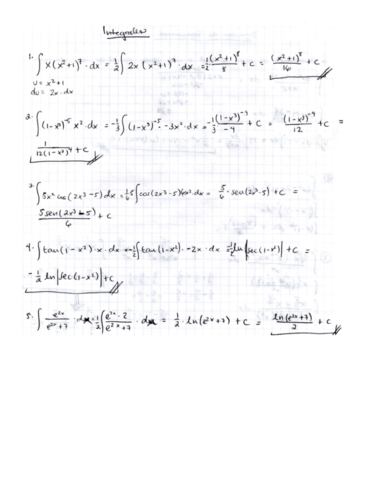 Integrales
1. ∫ x(x²+1)⁷ · dx = 1/2 ∫ 2x (x²+1)⁷ · dx = 1/2 (x²+1)⁸/8 + C = (x²+1)⁸/16 + C
u = x²+1
du = 2x · dx
2. ∫ (1-x³)⁻⁵ x² · dx = -1/3 ∫ (1-x³)⁻⁵ · -3x² · dx = -1/3 (1-x³)⁻⁴/-4 + C = (1-x³)⁻⁴/12 + C =
1/12(1-x³)⁴ + C
3. ∫ 5x² cos(2x³-5) dx = 5/6 ∫ cos(2x³-5) 6x² · dx = 5/6 · sen(2x³-5) + C =
5 sen(2x³-5)/6 + C
4. ∫ tan(1-x²) · x · dx = -1/2 ∫ tan(1-x²) · -2x · dx = -1/2 ln|sec(1-x²)| + C =
-1/2 ln|sec(1-x²)| + C
5. ∫ e²ˣ/e²ˣ+7 · dx = 1/2 ∫ e²ˣ · 2/e²ˣ+7 · dx = 1/2 · ln(e²ˣ+7) + C = ln(e²ˣ+7)/2 + C